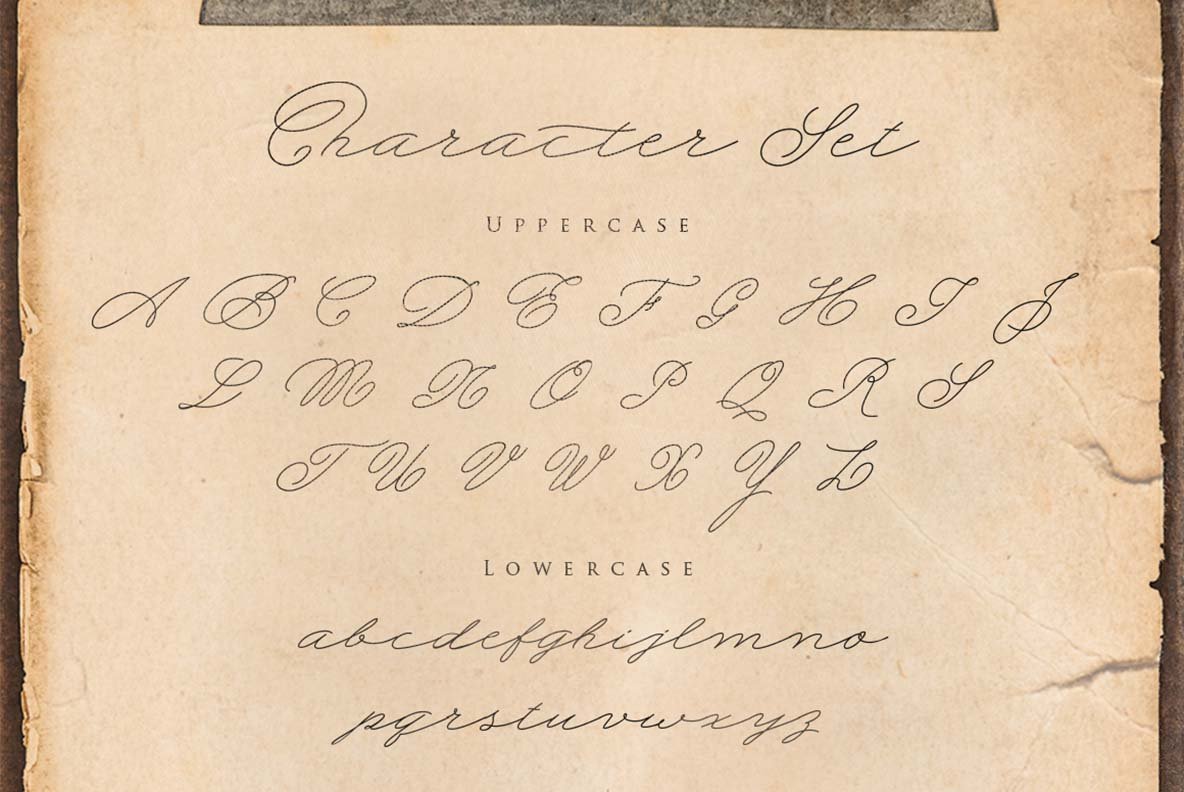 Character Set
UPPERCASE
A B C D E F G H I J
L M N O P Q R S
T U V W X Y Z
LOWERCASE
abcdefghijlmno
pqrstuvwxyz